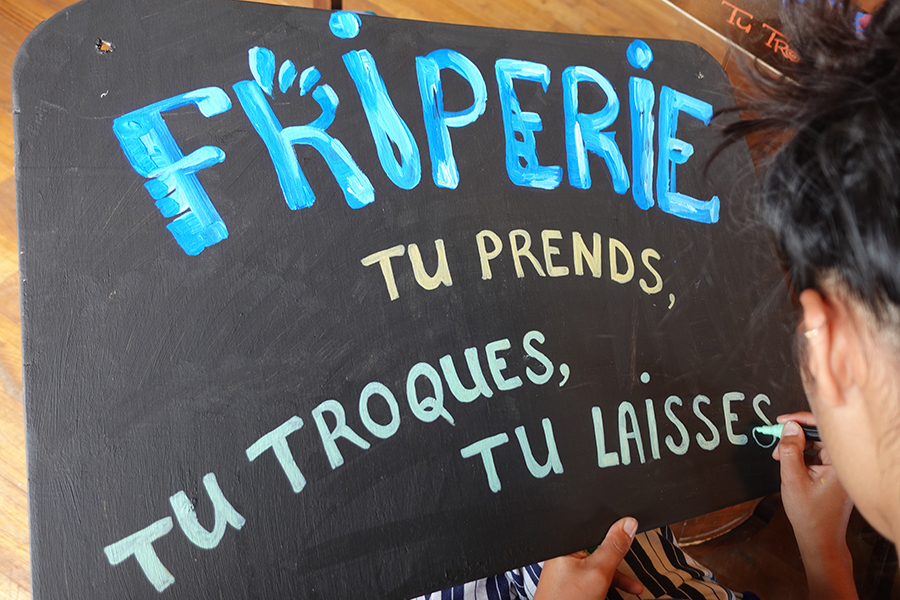 FRIPERIE
TU PRENDS,
TU TROQUES,
TU LAISSES
TU